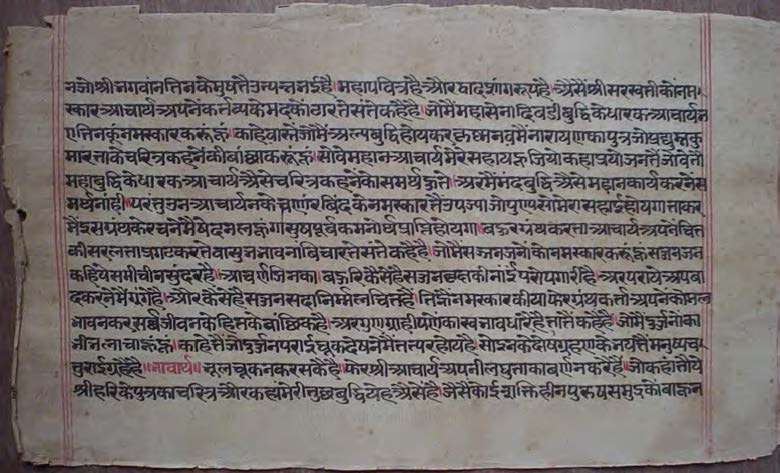 नजो श्री भगवांन तिनके मुषतै उत्पन्न भई है। महापवित्र है और द्वादशांगरूप है। अैसैं श्री सरस्वती कों नम
स्कार आचार्य अपनें कर्तव्य के मद कों ठारते संते कहै है। जो मैं महासेनादि बडी बुद्धि के धारक आचार्य न
ए तिनकूं नमस्कार करूं हूं। काहे वास्ते जो मैं अल्पबुद्धि होय कर कृष्ण नवमें नारायण का पुत्र जो प्रद्युम्न कु
मार ता के चरित्र कहनें की बांछा करूं हूं। सो वे महान आचार्य मेरे सहाय हूजियो कहा प्रयोजन तैं जो वे तो
महाबुद्धि के धारक आचार्य अैसे चरित्र कहनें को समर्थ हुते। अर मैं मंदबुद्धि अैसे महान कार्य करनें स
मर्थ नांही। परंतु उन आचार्यन के चर्णारविंद के नमस्कार तैं उपज्या जो पुण्य सो मेरा सहाई होयगा ता कर
मैं इस ग्रंथ के रचने में षेद न लहूंगा सुषपूर्वक मनोर्थ प्राप्ति होयगा। बहुर ग्रंथकर्त्ता आचार्य अपनें चित्त
की सरलता प्रगट करते वा सुभ भावना विचारते संते कहै है। जो मैं सजन जनों कों नमस्कार करूं हूं सजन जन
कहिये समीचीन सुंदर है। आचर्ण जिनका। बहुरि कैसे है सजन की नाईं परोपगारी है। अर पराये अपवा
द करनें में गूंगे है। और कैसे है सजन सदा निर्म्मल चित्त है। तिहें नमस्कार कीया फेर ग्रंथकर्त्ता अपनें कोमल
भावन कर सर्व जीवन के हित के बांछिक है। अर गुणग्राही पणें का स्वभाव धारै है तातैं कहै है। जो मैं दुर्जनों का
जी चाहूं हूं। काहे तैं जो दुर्जन पराई चूक देषनें मैं तत्पर होय है। सो उनके दोष ग्रहण के भय तैं मनुष्य च
तुराई ग्रहै है॥ भावार्थ॥ भूल चूक न कर सकै है। फेर श्री आचार्य अपनी लघुता का बर्णन करै है। जो कहां तौ ये
श्री हरि के पुत्र का चरित्र और कहां मेरी तुछ बुद्धि येह अैसें है। जैसैं कोई शक्तिहीन पुरूष समुद्र कों बाहून